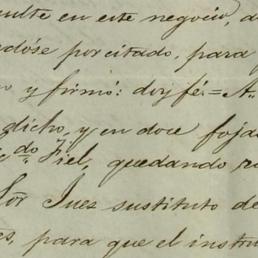 sulte en este negocio, d
dóse por citado, para
o y firmó: doy fé.= A.
dicho, y en doce foja
do. Fiel, quedando re
Sor Juez sustituto de
es, para que el instru